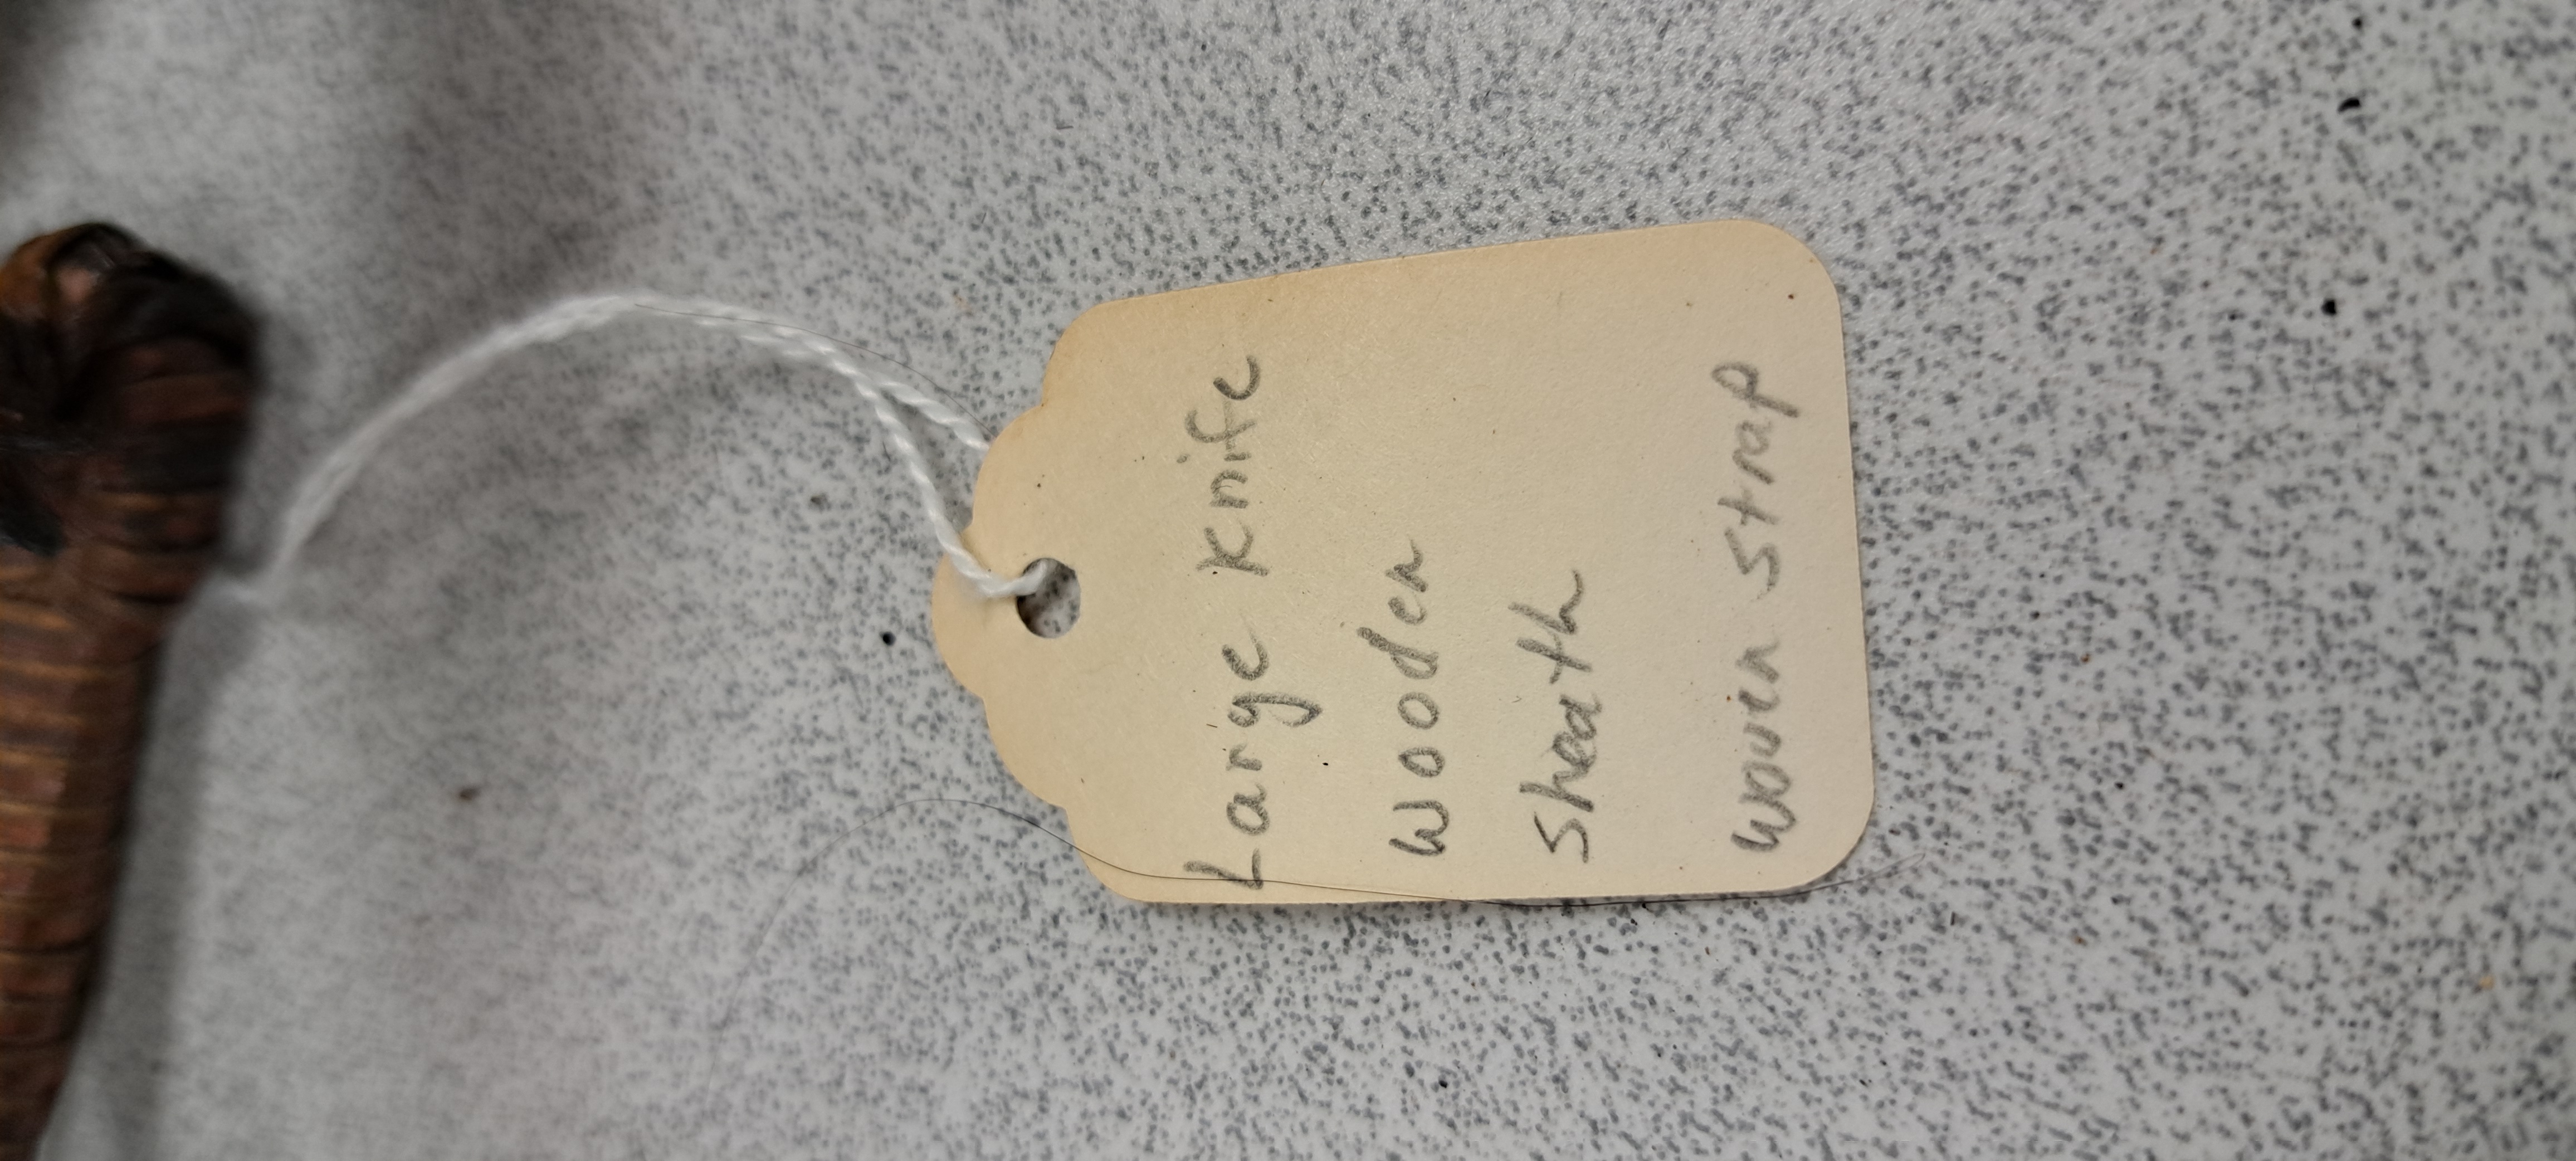 Large Knife
Wooden
Sheath
Woven Strap